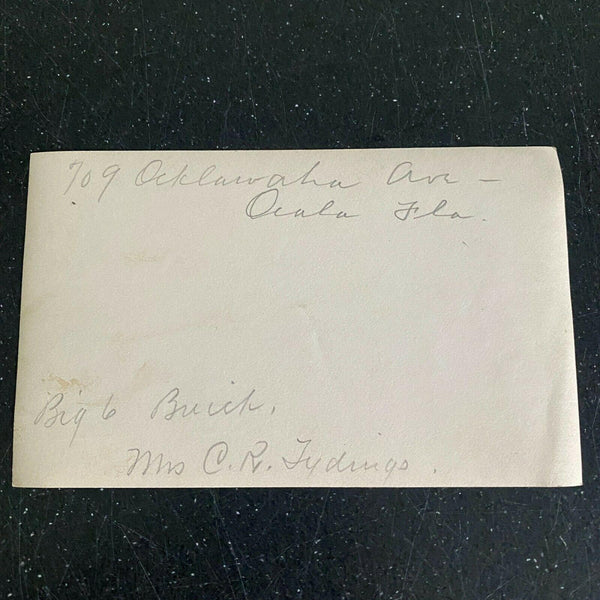 709 Ocklawaha Ave -
Ocala Fla.
Big 6 Buick.
Mrs C. R. Tydings.